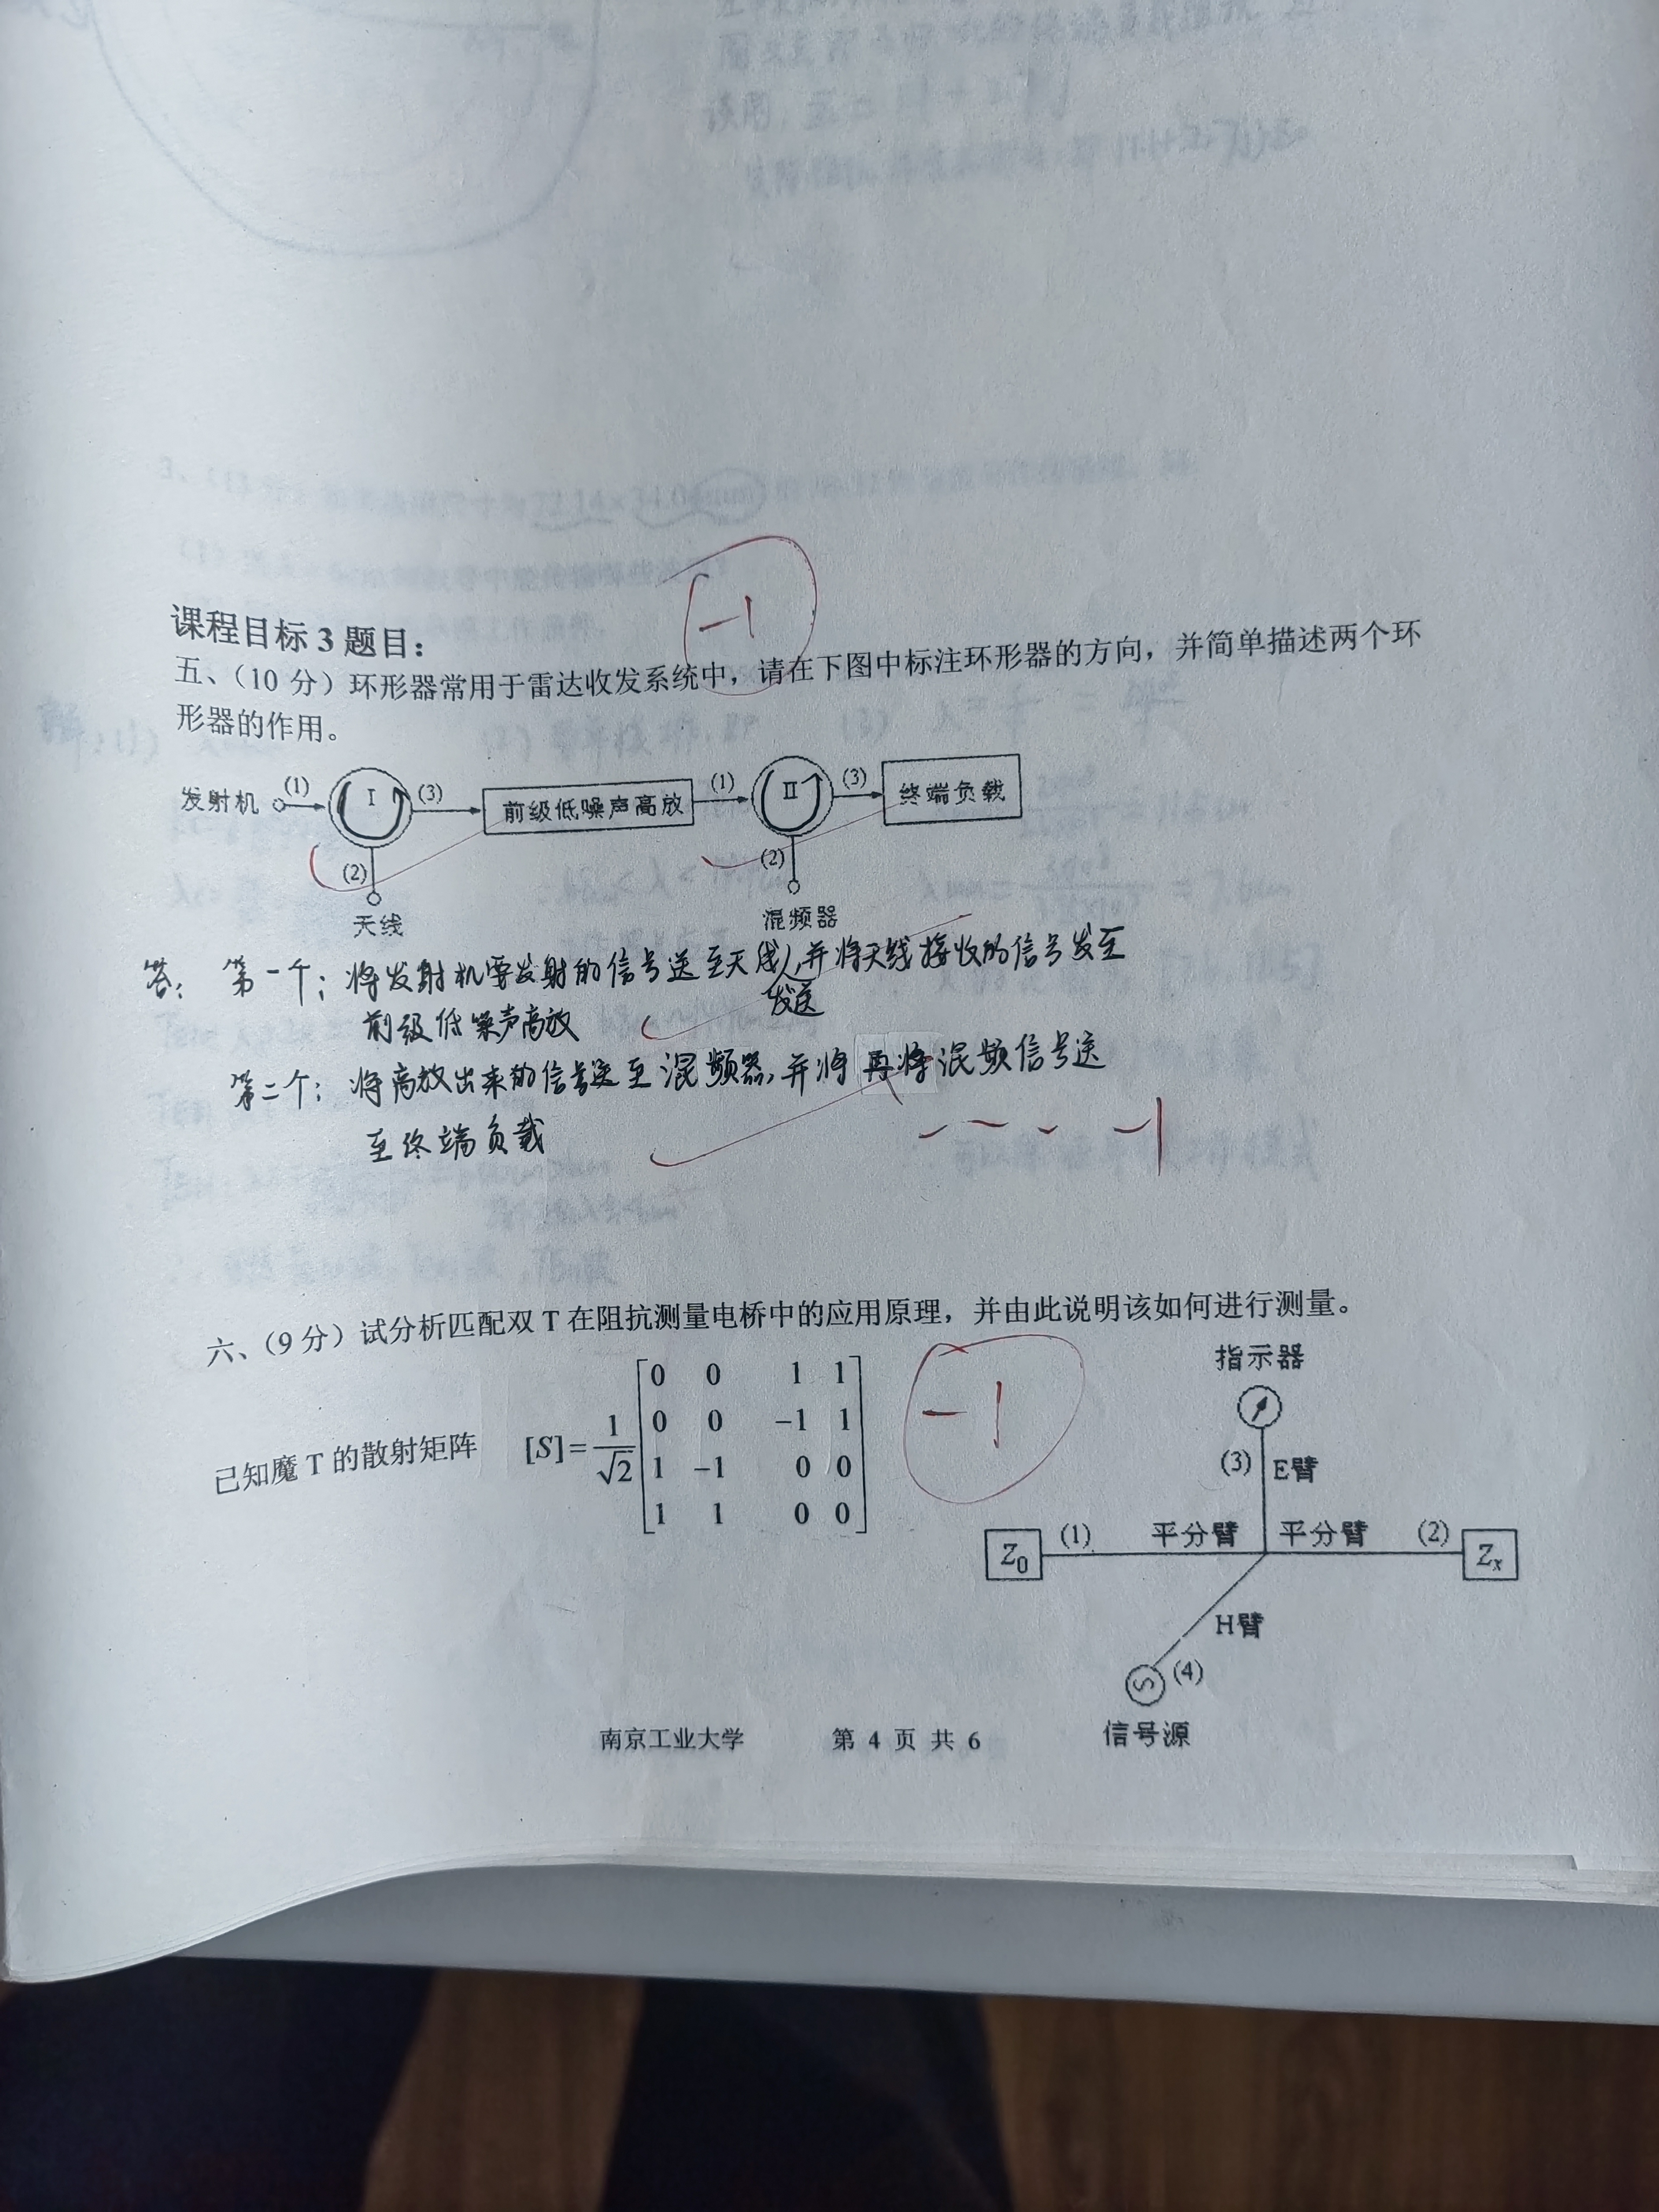 -1
课程目标 3 题目：
五、（10 分）环形器常用于雷达收发系统中，请在下图中标注环形器的方向，并简单描述两个环
形器的作用。
发射机 (1) I (3) 前级低噪声高放 (1) II (3) 终端负载
(2) (2)
天线 混频器
答： 第一个：将发射机要发射的信号送至天线，并将天线接收的信号发至
发送
前级低噪声高放
第二个：将高放出来的信号送至混频器，并将再将混频信号送
至终端负载
-1
六、（9 分）试分析匹配双 T 在阻抗测量电桥中的应用原理，并由此说明该如何进行测量。
已知魔 T 的散射矩阵 [S]=1/√2
0 0 1 1
0 0 -1 1
1 -1 0 0
1 1 0 0
-1
指示器
(3) E臂
Z0 (1) 平分臂 平分臂 (2) Zx
H臂
S (4)
信号源
南京工业大学 第 4 页 共 6